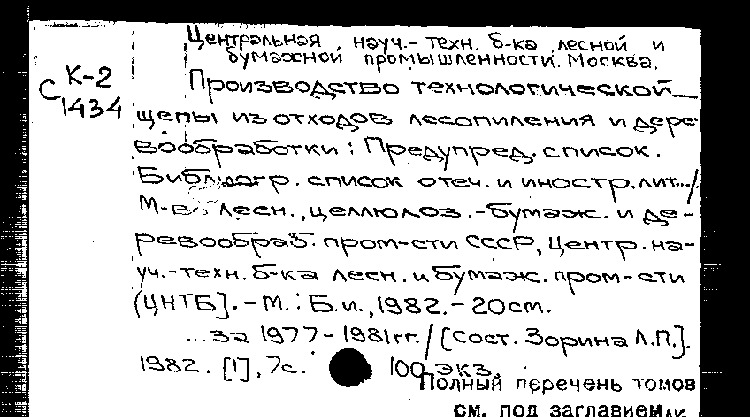 Центральная науч.- техн. б-ка лесной и
бумажной промышленности. Москва.
К-2
С 1434
Производство технологической
щепы из отходов лесопиления и дере-
вообработки : Предупред. список.
Библиогр. список отеч. и иностр. лит.../
М-во лесн., целлюлоз.-бумаж. и де-
ревообраб. пром-сти СССР, Центр. на-
уч.-техн. б-ка лесн. и бумаж. пром-сти
(ЦНТБ]. - М. : Б.и., 1982. - 20 см.
... за 1977 - 1981 гг. / [Сост. Зорина Л.П.].
1982. [1], 7 с. 100 экз.
Полный перечень томов
см. под заглавием